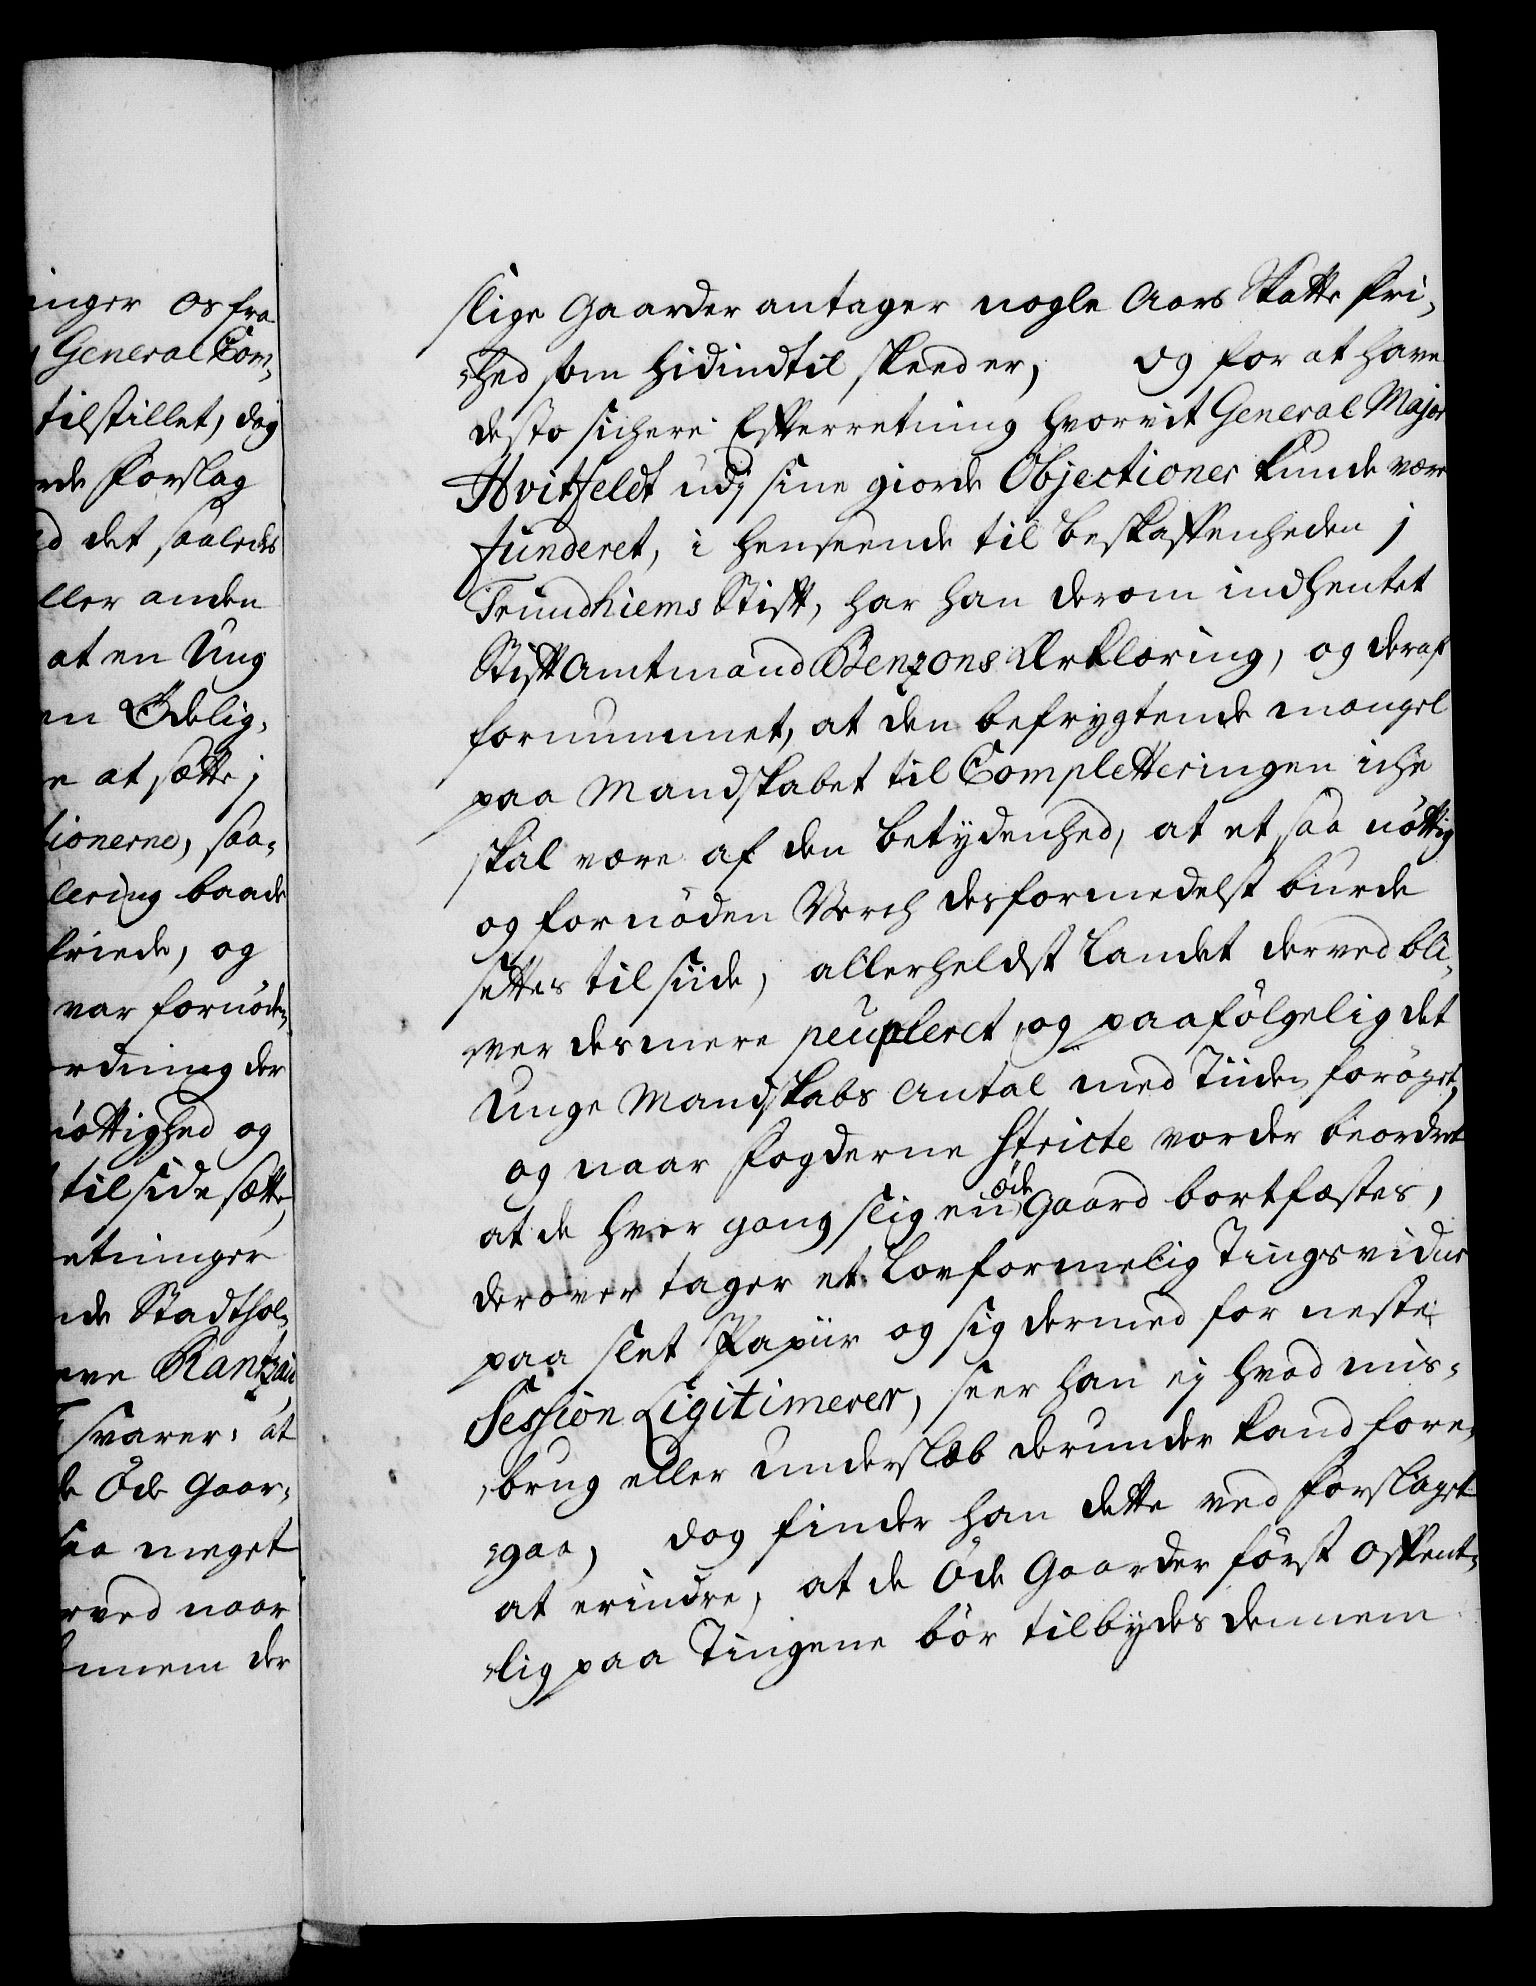 inger os fra
General Com,
tilstillet, dog
rde Forslag
d det saaledes
ller anden
at en Ung
en Ödelig,
e at sætte j
tionerne, saa,
lering baade
friede, og
var fornöden,
rdning der
nöttighed og
til side sætte,
etninger
nde Stadthol,
eve Rantzau
svarer, at
de Öde Gaar,
saa meget
rved naar
dennem der
slige Gaarder antager nogle Aars Skatte Fri,
,hed som hidindtil skeed er, og for at have
desto sichere Efterretning hvorvit General Major
Hvitfeldt udj sine giorde Objectioner kunde være
funderet, i henseende til beskaffenheden j
Trundhiems Stift, har han derom indhentet
Stiftamtmand Benzons Erklæring, og deraf
fornummet, at den befrygtende mangel
paa Mandskabet til Completteringen iche
skal være af den betydenhed, at et saa nöttig
og fornöden Værch desformedelst burde
settes til siide, allerheldst Landet derved bli,
,ver desmere peupleret, og paafölgelig det
Unge Mandskabs Antal med Tiiden foröget,
og naar Fogderne stricte vorder beordret
at de hver gang slig en öde Gaard bortfæstes,
derover tager et Lovformelig Tingsvidne
paa slet Papiir og sig dermed for neste
Session Ligitimerer, seer han ej hvad mis,
,brug eller underslæb derunder kand fore,
,gaa, dog finder han dette ved Forslaget
at erindre, at de Öde Gaarder först offent,
,lig paa Tingene bör tilbydes dennem